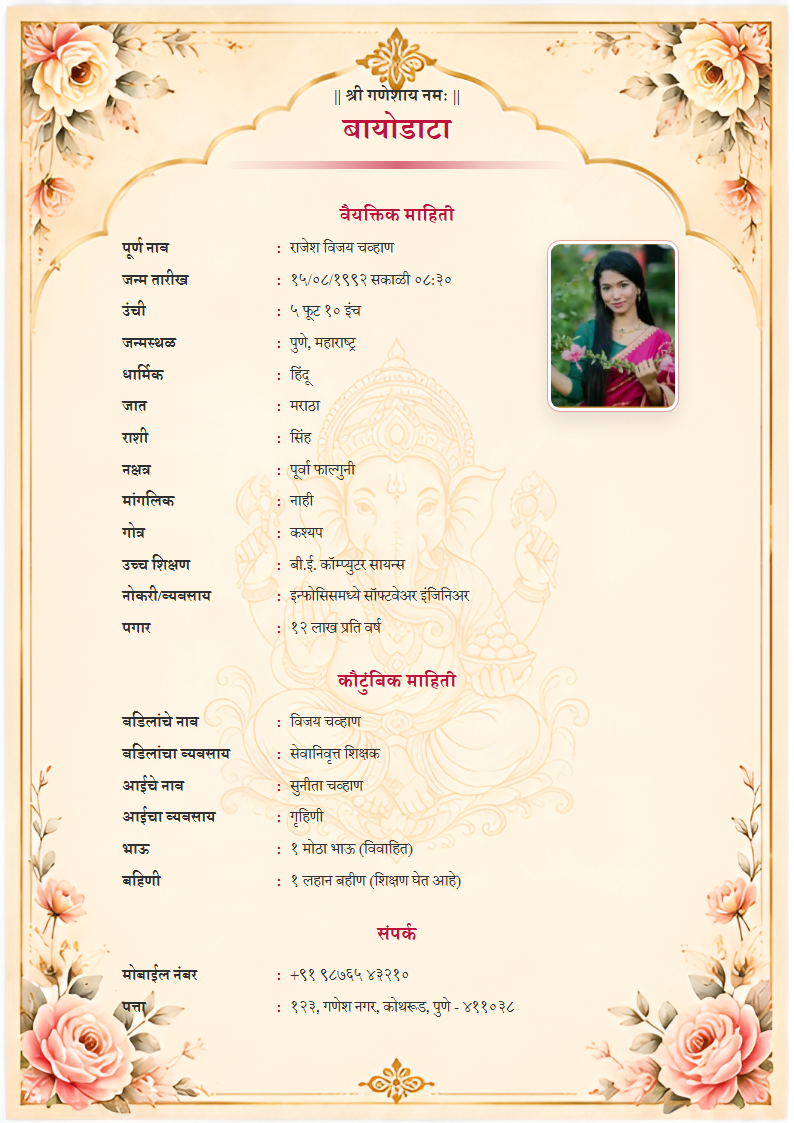 || श्री गणेशाय नमः ||
बायोडाटा
वैयक्तिक माहिती
पूर्ण नाव : राजेश विजय चव्हाण
जन्म तारीख : १५/०८/१९९२ सकाळी ०८:३०
उंची : ५ फूट १० इंच
जन्मस्थळ : पुणे, महाराष्ट्र
धार्मिक : हिंदू
जात : मराठा
राशी : सिंह
नक्षत्र : पूर्वा फाल्गुनी
मांगलिक : नाही
गोत्र : कश्यप
उच्च शिक्षण : बी.ई. कॉम्प्युटर सायन्स
नोकरी/व्यवसाय : इन्फोसिसमध्ये सॉफ्टवेअर इंजिनिअर
पगार : १२ लाख प्रति वर्ष
कौटुंबिक माहिती
वडिलांचे नाव : विजय चव्हाण
वडिलांचा व्यवसाय : सेवानिवृत्त शिक्षक
आईचे नाव : सुनीता चव्हाण
आईचा व्यवसाय : गृहिणी
भाऊ : १ मोठा भाऊ (विवाहित)
बहिणी : १ लहान बहीण (शिक्षण घेत आहे)
संपर्क
मोबाईल नंबर : +९१ ९८७६५ ४३२१०
पत्ता : १२३, गणेश नगर, कोथरूड, पुणे - ४११०३८